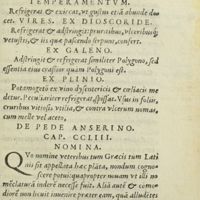 TEMPERAMENTVM.
Refrigerat & exiccat, vt gustus etiã aliunde duo
cet. VIRES. EX DIOSCORIDE.
Refrigerat & adstringit: pruritibus, vlceribusq́;
vetustis, & iis quæ pascendo serpunt, confert.
EX GALENO.
Adstringit & refrigerat similiter Polygono, sed
essentia eius crassior quam Polygoni est.
EX PLINIO.
Potamogetõ ex vino dysentericis & cœliacis me
detur. Peculiariter refrigerat, spissat. Vsus in foliis,
cruribus vitiosis vtilia, & contra vlcerum nomas,
cum melle vel aceto,
DE PEDE ANSERINO.
CAP. CCLIII.
NOMINA.
QVo nomine veteribus tum Græcis tum Lati
nis sit appellata hæc plãta, nondum cogno
scere potui: quapropter nouam vt illi no
mẽclaturã inderẽ necesse fuit. Aliã autẽ & cõmo
diorem non licuit inuenire præter eam, quã alludẽtes